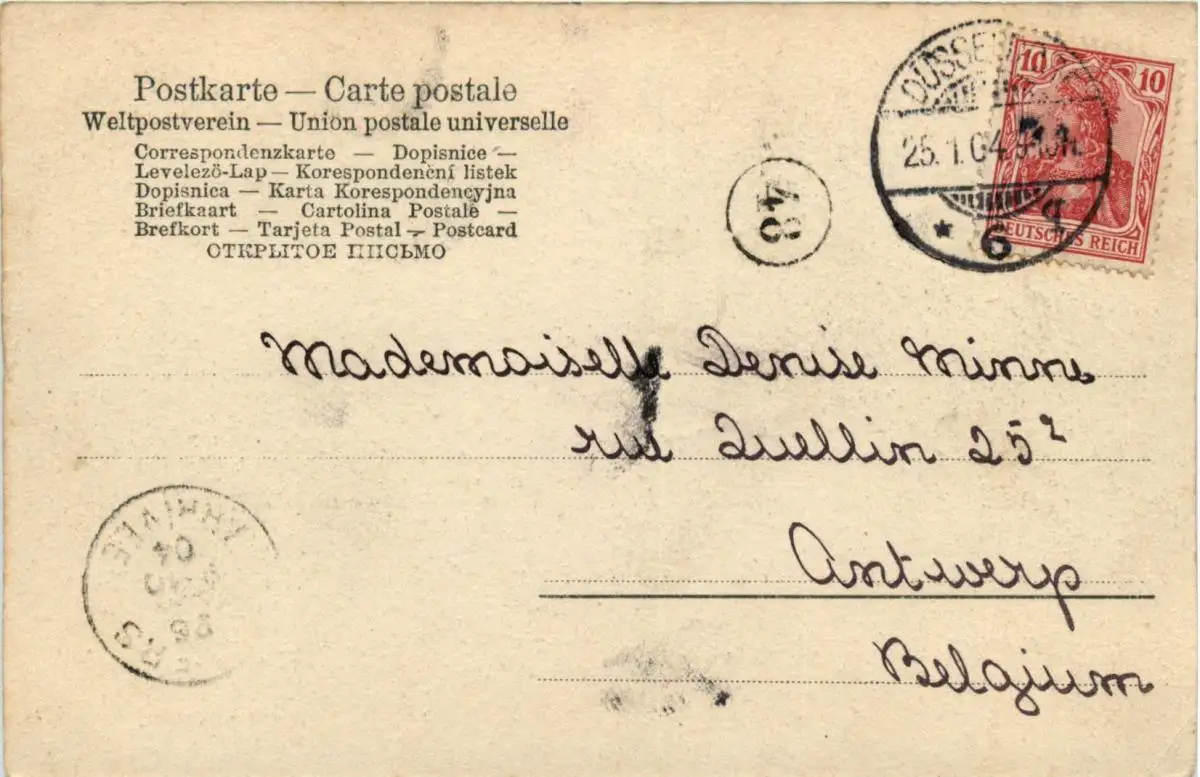 Postkarte — Carte postale
Weltpostverein — Union postale universelle
Correspondenzkarte — Dopisnice —
Levelező-Lap — Korespondenční listek
Dopisnica — Karta Korespondencyjna
Briefkaart — Cartolina Postale —
Brefkort — Tarjeta Postal — Postcard
ОТКРЫТОЕ ПИСЬМО
48
25.1.04
* 6 q
10 10
DEUTSCHES REICH
Mademoiselle Denise Minne
rue Quellin 25²
Antwerp
Belgium
ARRIVEE
04
26
ERS